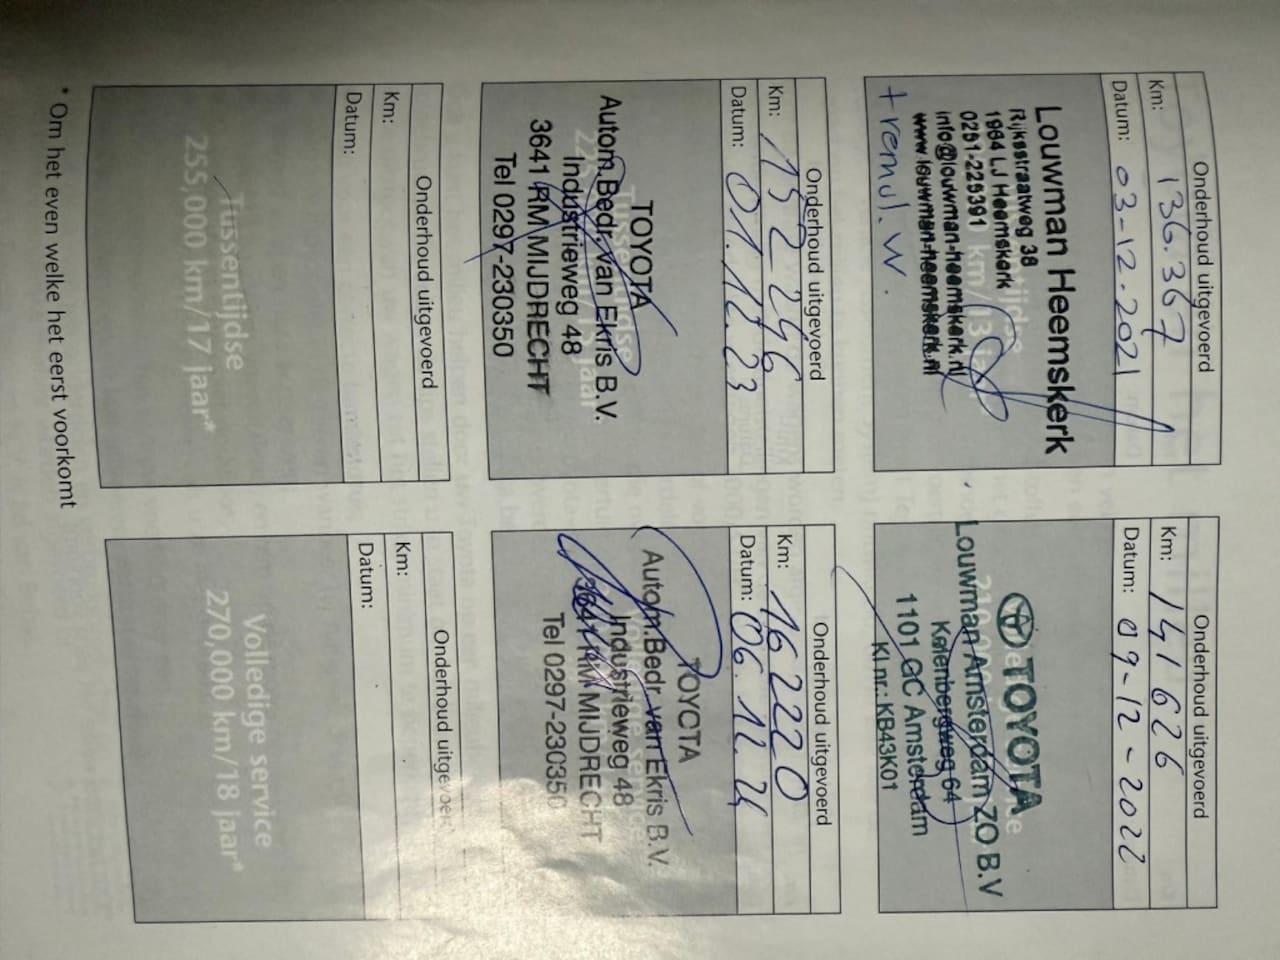 Onderhoud uitgevoerd
Km: 136.367
Datum: 03-12-2021
Louwman Heemskerk
Rijksstraatweg 38
1964 LJ Heemskerk
0251-225391
info@louwman-heemskerk.nl
www.louwman-heemskerk.nl
+ remvl. W.
Onderhoud uitgevoerd
Km: 141626
Datum: 09-12-2022
TOYOTA
Louwman Amsterdam ZO B.V
Kollenbergweg 64
1101 GC Amsterdam
Kl.nr.: KB43K01
Onderhoud uitgevoerd
Km: 152246
Datum: 01.12.23
TOYOTA
Autom.Bedr.van Ekris B.V.
Industrieweg 48
3641 RM MIJDRECHT
Tel 0297-230350
Onderhoud uitgevoerd
Km: 162220
Datum: 06.12.24
TOYOTA
Autom.Bedr.van Ekris B.V.
Industrieweg 48
3641 RM MIJDRECHT
Tel 0297-230350
Onderhoud uitgevoerd
Km:
Datum:
Tussentijdse
255,000 km/17 jaar*
Onderhoud uitgevoerd
Km:
Datum:
Volledige service
270,000 km/18 jaar*
* Om het even welke het eerst voorkomt